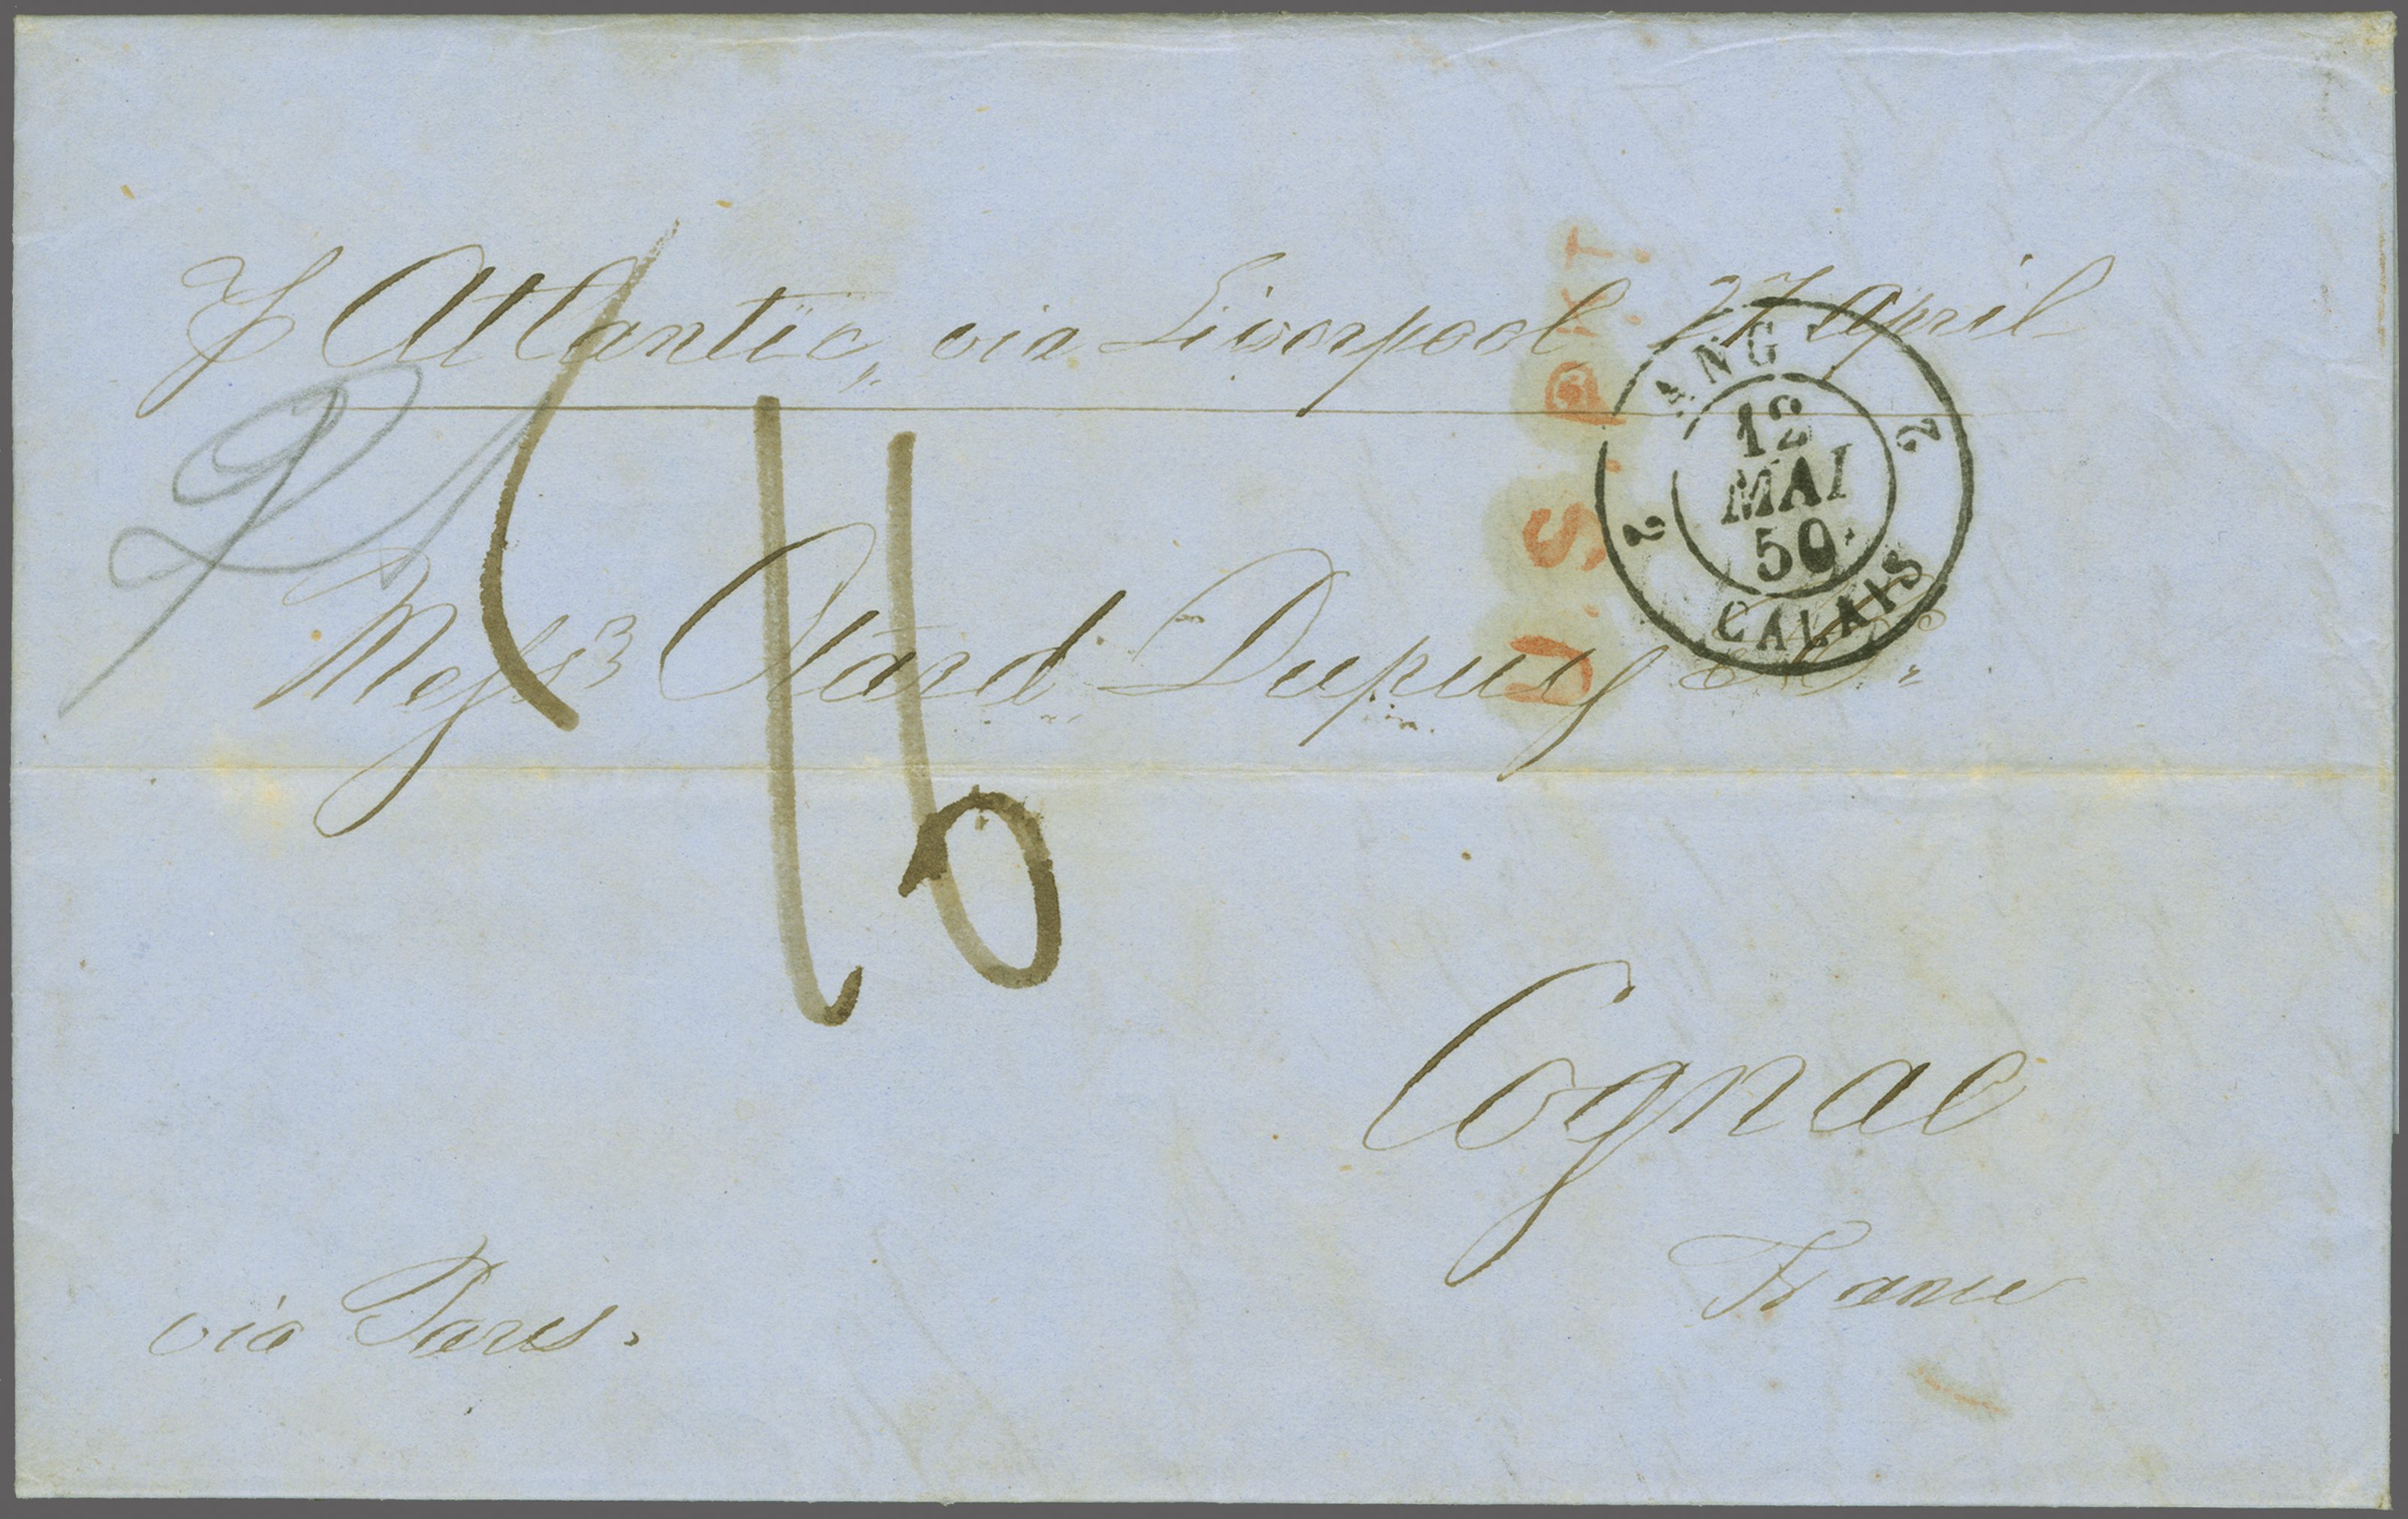 p Atlantic, via Liverpool 27 April
U.S. PKT
ANG. 2 CALAIS 2
12
MAI
50
Messrs Otard Dupuy & Co.
16
Cognac
France
via Paris.